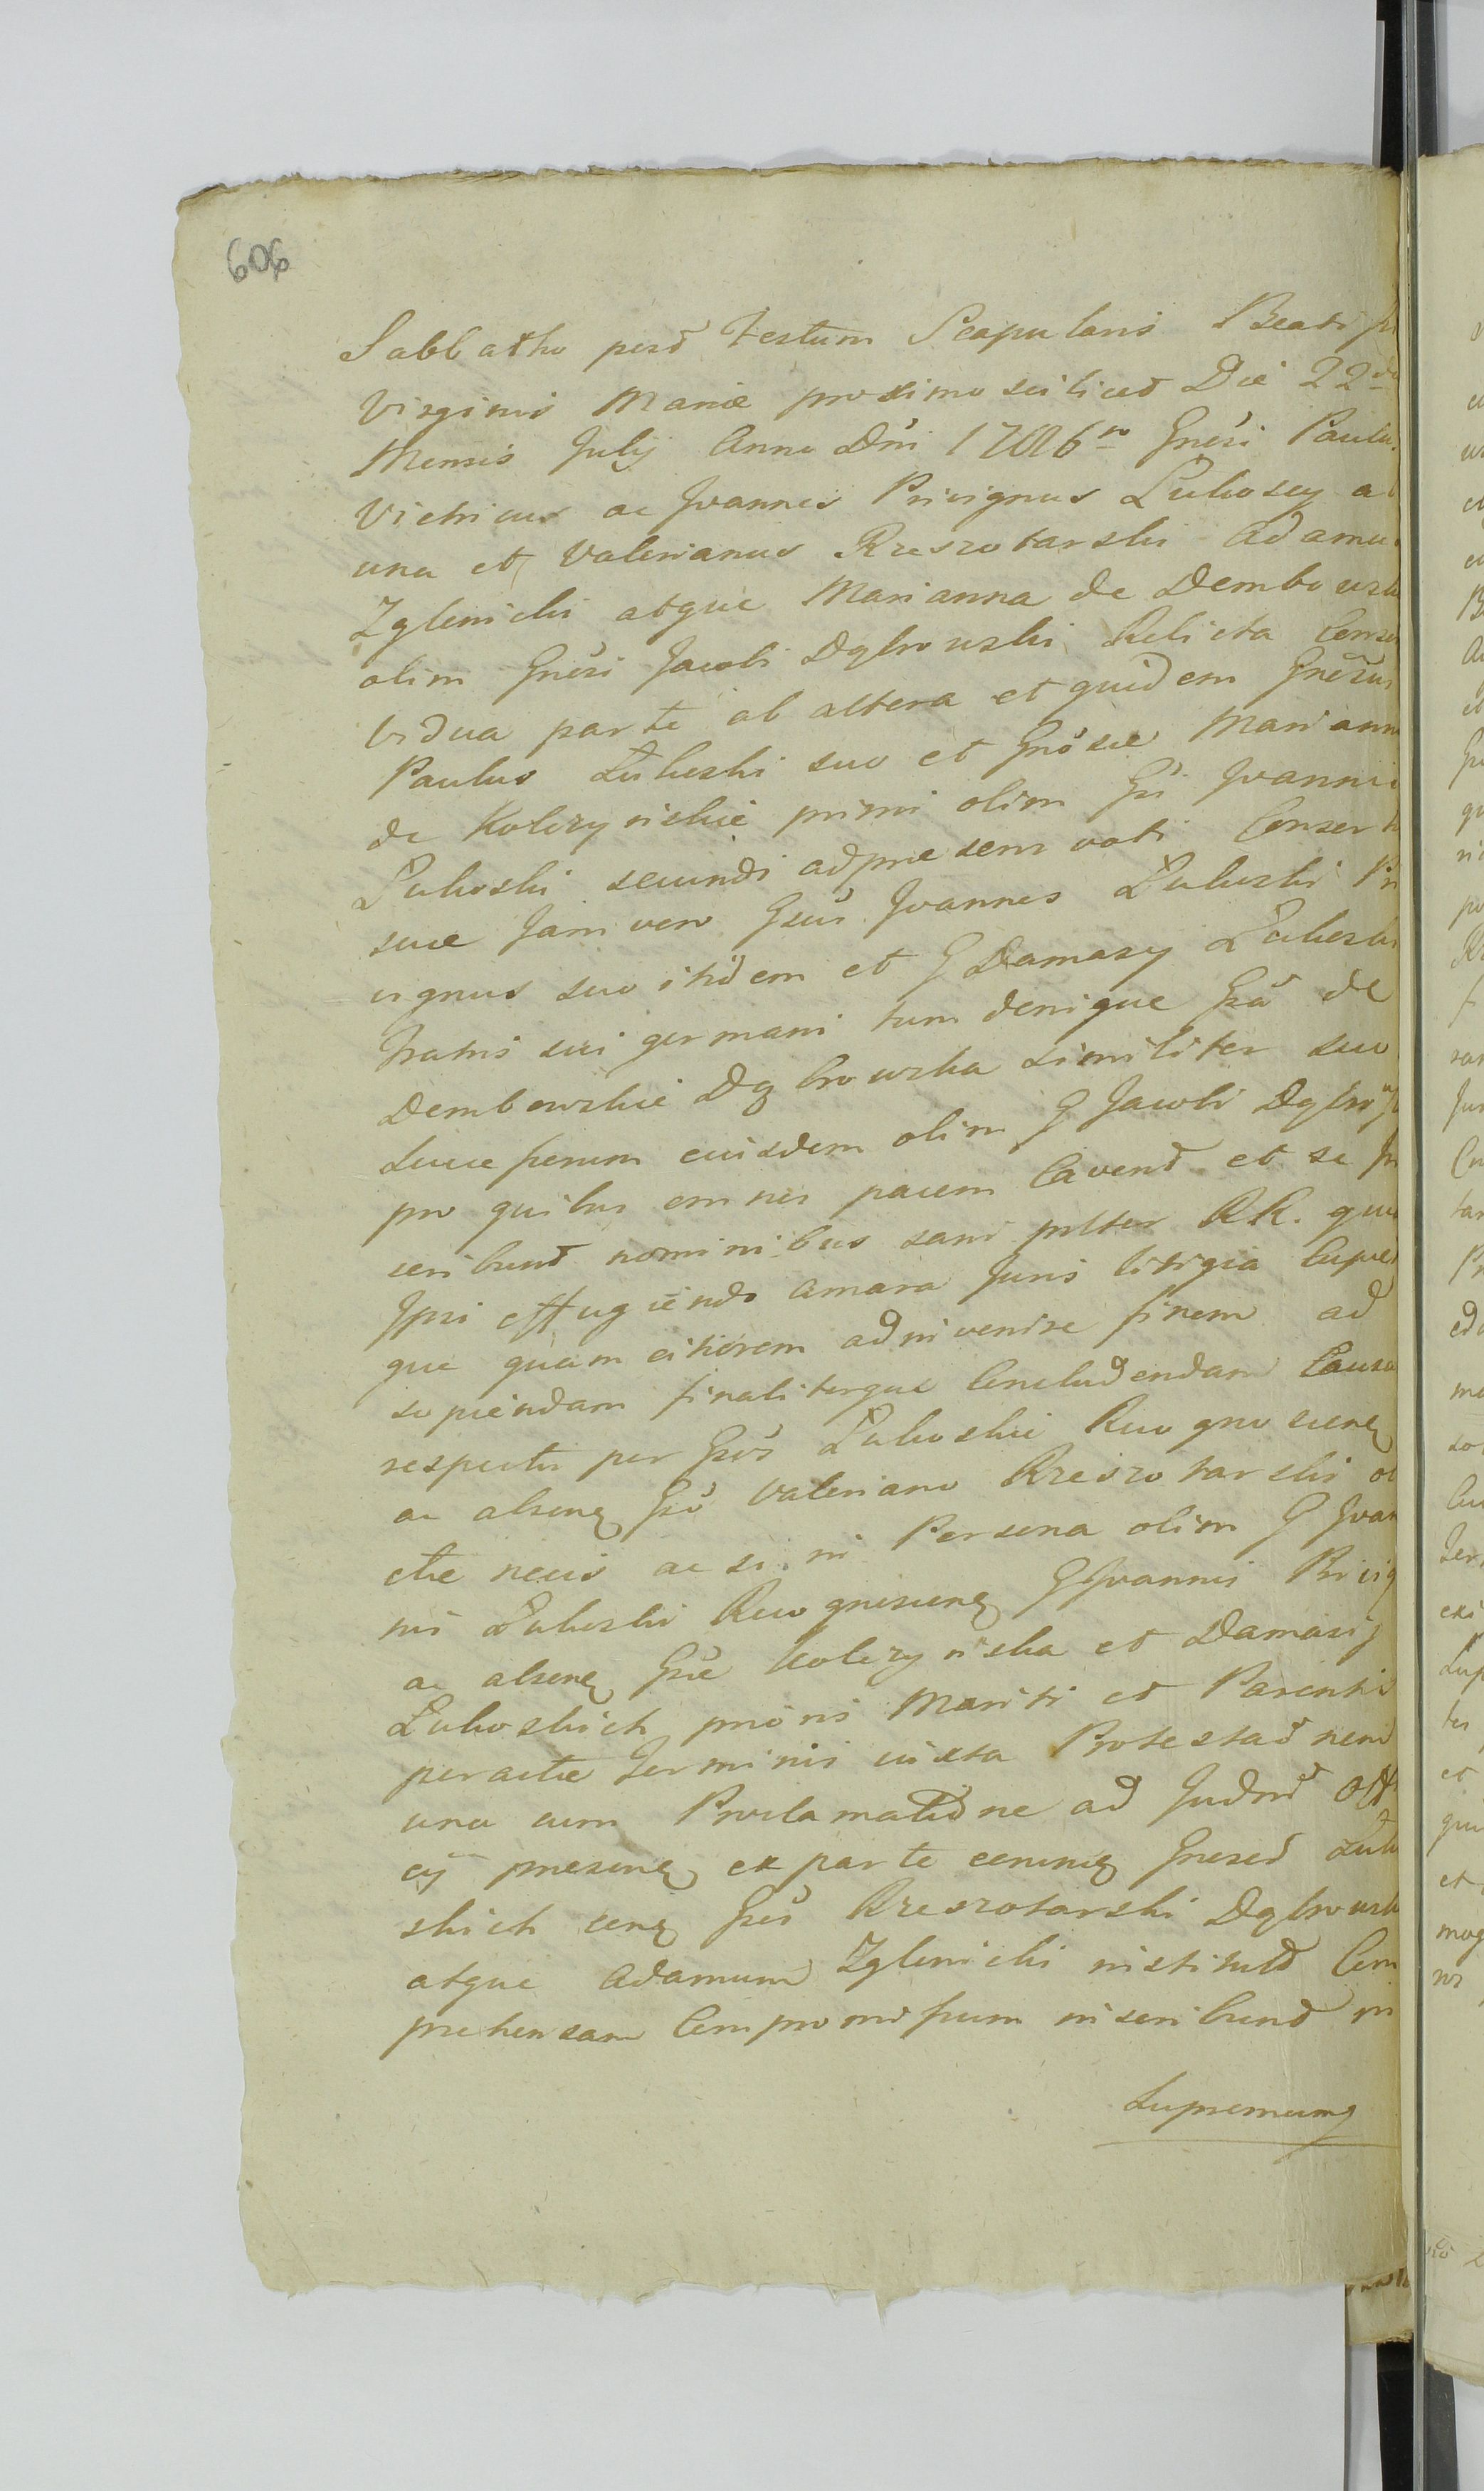 606
Sabbatho post Festum Scapularis Beatiss
Virginis Mariæ proximo scilicet Die 22da
Mensis Julij Anno Dñi 1786to Gnẽsi Paulu
Vitricus ac Joannes Privignus Łukoscy a
una et Valerianus Rzeszotarski Adamus
Zglenicki atque Marianna de Dembowsk
olim Gnẽsi Jacobi Dąbrowski Relicta Conso
Vidua parte ab altera et quidem Gnẽsus
Paulus Łukoski suo et Gnõsæ Mariann
de Kolczynskie primi olim Gñi Joannis
Łukoski secundi ad præsens voti Consort
suæ Jam vero Gsus Joannes Łukoski Pri
vignus suo itidem et G Damazy Łukoski
Fratris sui germani tum denique Gsa de
Dembowskie Dąbrowska similiter suo
Succesorum eiusdem olim G Jacobi Dąbrows
pro quibus omnes pacem Cavend et se In
scribund nominibus sani pltter RR. quia
Ipsi effugiendo amara Juris litigia Cupie
que quam citiorem adinvenire finem ad
sopiendam finaliterque Concludendam Causa
respectu per Gsõs Łukoskie Recognoscenꝫ
ac absenꝫ Gsõ Valeriano Rzeszotarski ob
ctæ necis ac si in Persona olim G Joan
nis Łukoski Recogniscenꝫ G Joannis Privig
ac absenꝫ Gsæ Kolczynska et Damasij
Łukoskich prioris Mariti et Parentis
peractæ Terminis iuxta Protestad nem
una cum Proclamatione ad Judm Offi
cij præsenꝫ ex parte eorunꝫ Gnesed Łuko
skich cenꝫ Gsõs Rzeszotarski Dąbrowsk
atque Adamum Zglenicki institutd Com
prehensam Compromissum inscribund in
Supremum